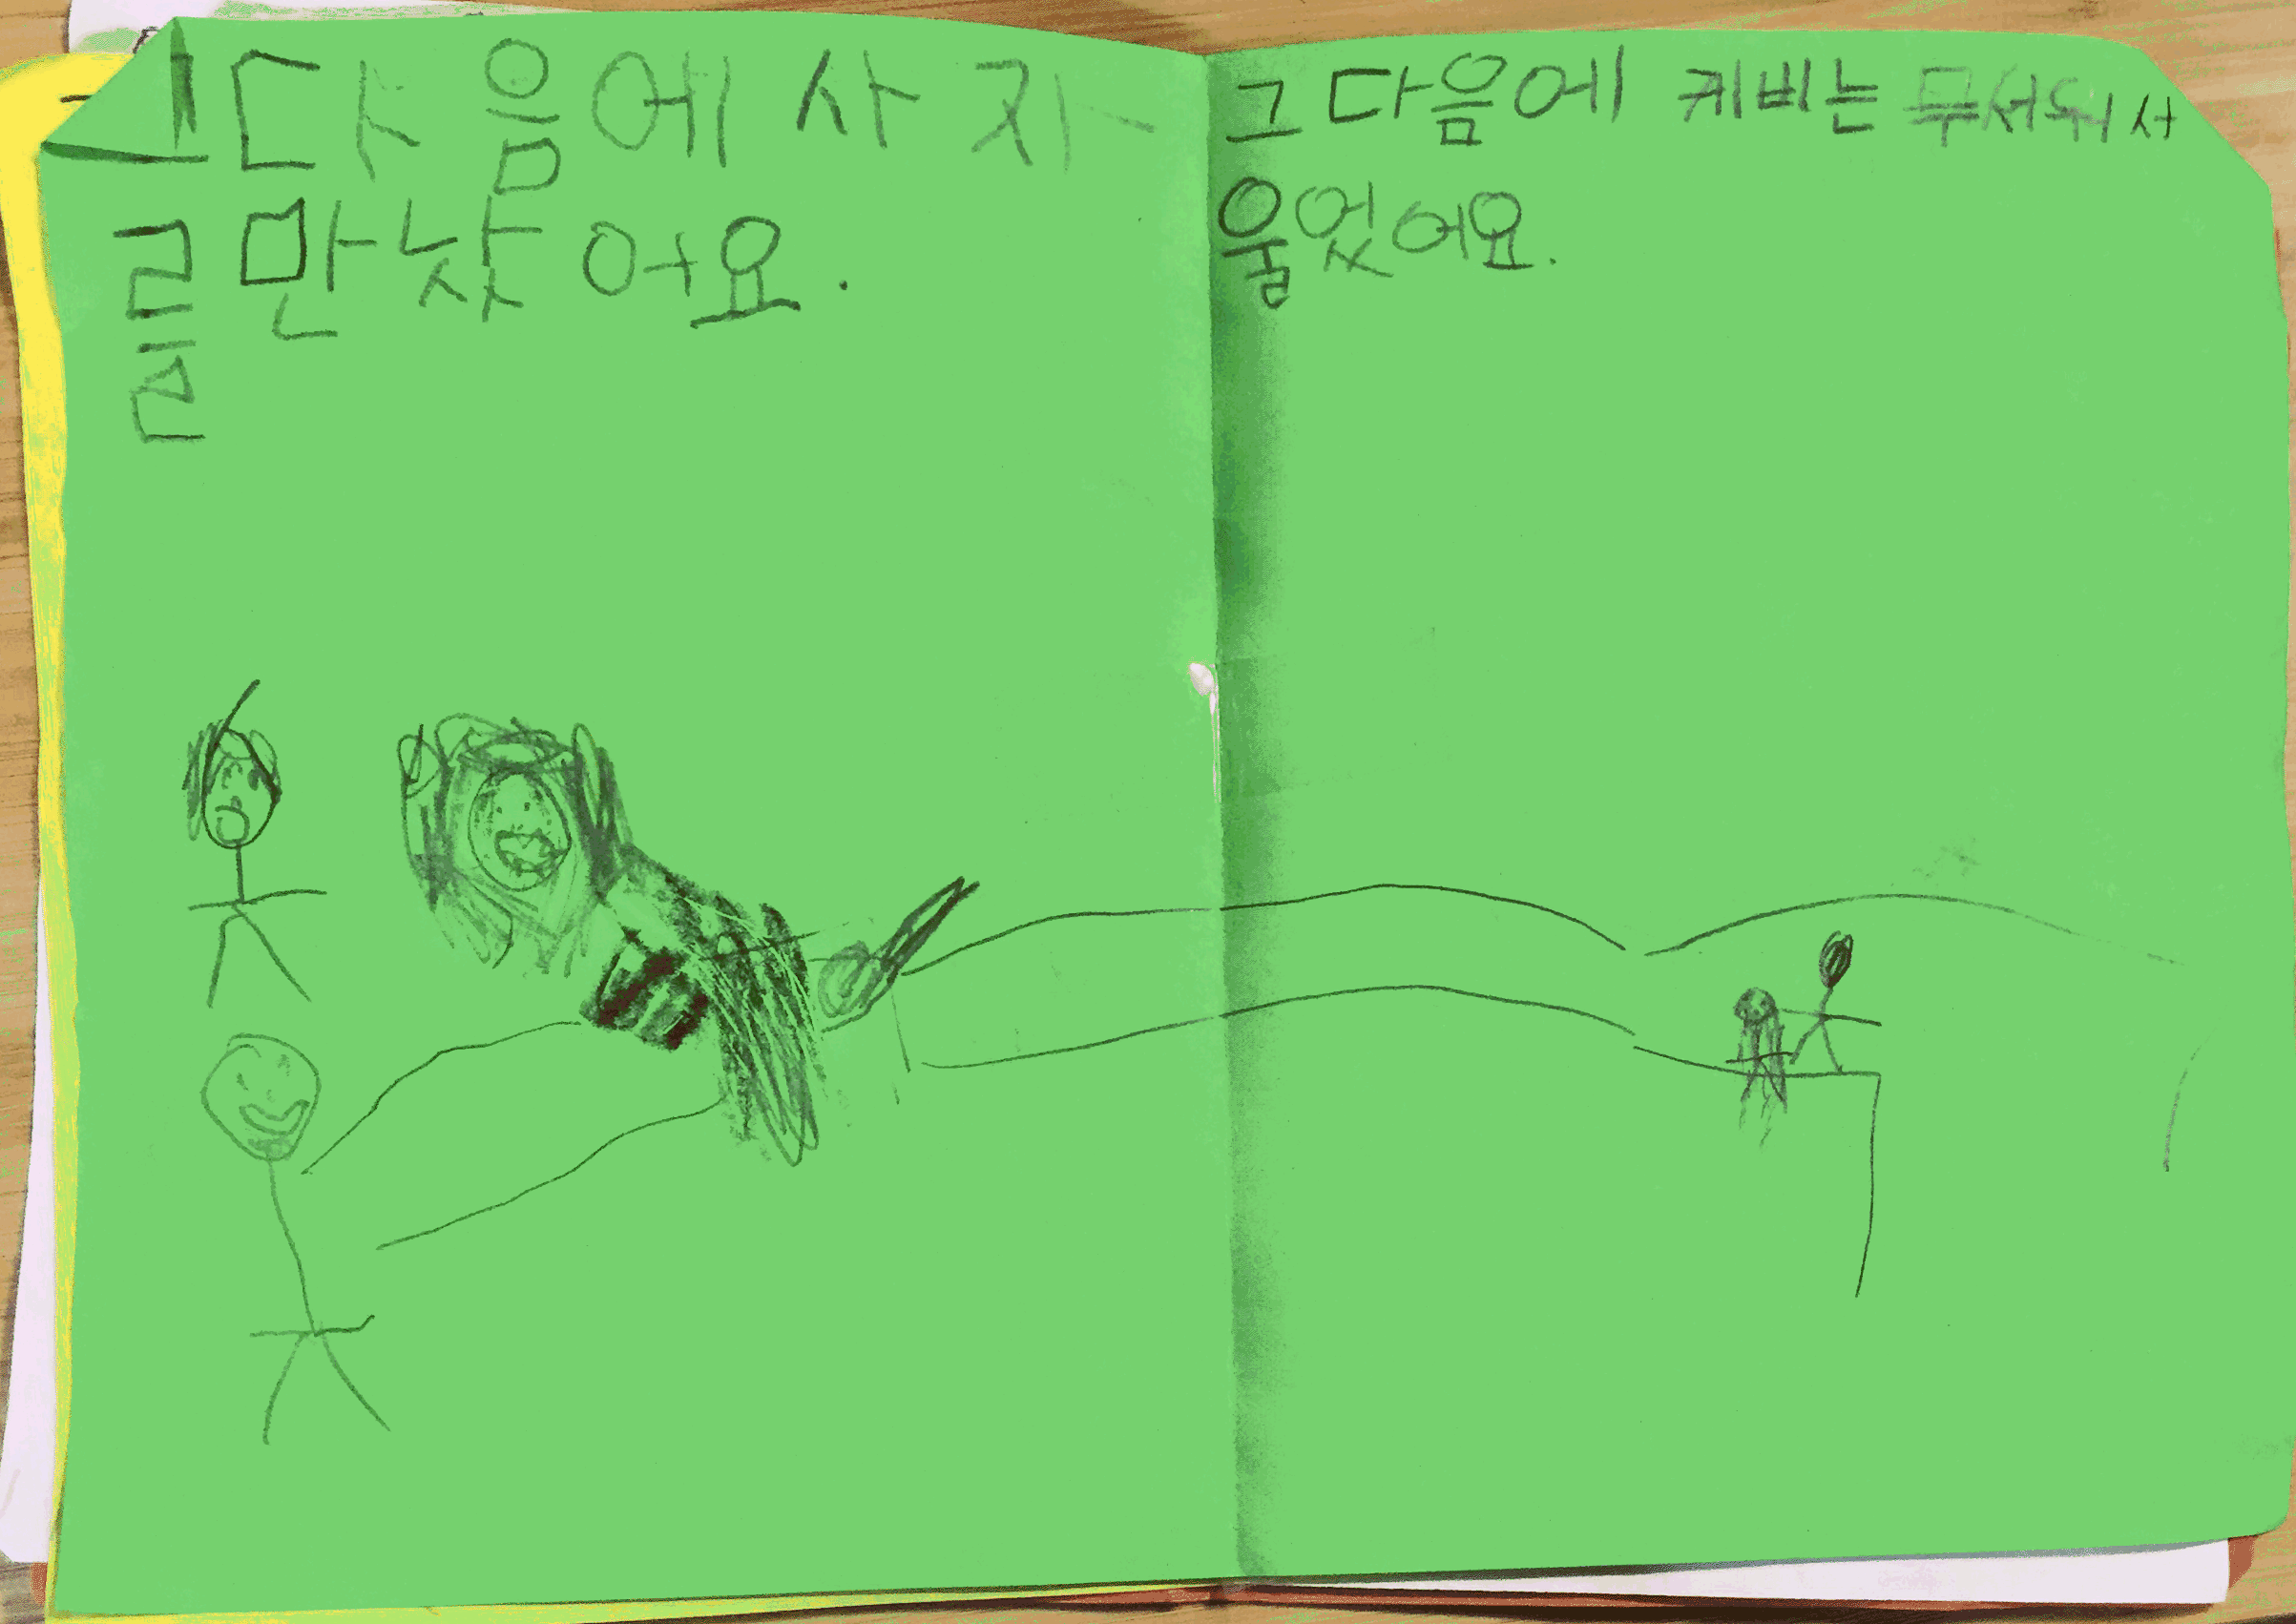 그다음에 사자
를 만났어요.
그 다음에 케비는 무서워서
울었어요.